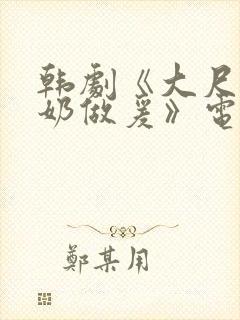 韩劇《大尺
奶做爰》電
鄭某用